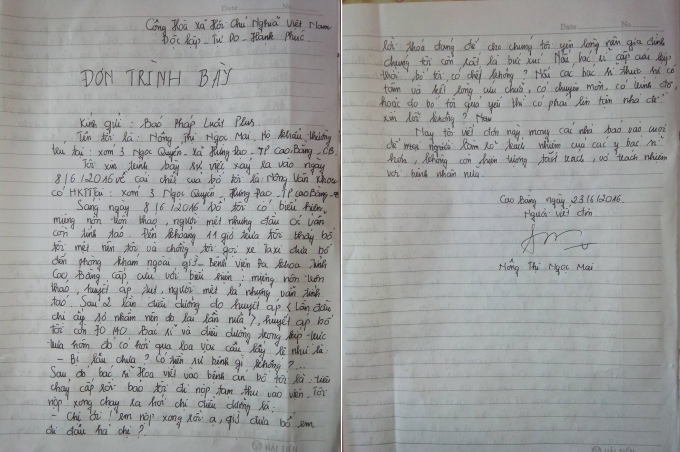 Date No
Cộng Hoà Xã Hội Chủ Nghĩa Việt Nam
Độc Lập - Tự Do - Hành Phúc.
ĐƠN TRÌNH BÀY
Kính gửi : Báo Pháp Luật Plus
Tên tôi là : Nông Thị Ngọc Mai, Hộ khẩu thường
trú tại : xóm 3 Ngọc Quyến - xã Hưng Đạo - TP Cao Bằng - CB
Tôi xin trình bày sự việc xảy ra vào ngày
8/6/2016 về cái chết của bố tôi là: Nông Văn Khoa
có HKTT tại : xóm 3 Ngọc Quyến - Hưng Đạo - TP Cao Bằng - CB
Sáng ngày 8/6/2016 bố tôi có biểu hiện
miệng nôn trôn tháo, người mệt nhưng đầu óc vẫn
còn tỉnh táo. Đến khoảng 11 giờ trưa tôi thấy bố
tôi mệt nên tôi và chồng tôi gọi xe Taxi đưa bố
đến phòng khám ngoài giờ - Bệnh viện Đa khoa tỉnh
Cao Bằng cấp cứu với biểu hiện : miệng nôn trôn
tháo, huyết áp tụt, người mệt lả nhưng vẫn tỉnh
táo. Sau 2 lần điều dưỡng đo huyết áp (lần đầu
chị ấy số nhầm nên đo lại lần nữa), huyết áp bố
tôi còn 70/40 Bác sĩ và điều dưỡng trong kíp trực
trưa hôm đó có hỏi qua loa vài câu lấy lệ như là:
- Bị lâu chưa ? Có tiền sử bệnh gì không ?...
Sau đó bác sĩ Hoa viết vào bệnh án bố tôi là : tiêu
chảy cấp rồi bảo tôi đi nộp tạm thu vào viện. Tôi
nộp xong chạy ra hỏi chị điều dưỡng là:
- Chị ơi ! em nộp xong rồi ạ, giờ đưa bố em
đi đâu hả chị ?
HẢI TIẾN
Date No
lời thoả đáng để cho chúng tôi yên lòng nên gia đình
chúng tôi còn rất là bức xúc. Nếu bác sĩ cấp cứu kịp
thời bố tôi có chết không ? Nếu các bác sĩ thực sự có
tâm và hết lòng cứu chữa, có chuyên môn, có trình độ,
hoặc do bố tôi quá yếu thì có phải lên tận nhà để
xin lỗi không ?
Nay tôi viết đơn này mong các nhà báo vào cuộc
để mọi người làm rõ trách nhiệm của các y bác sĩ
hơn, không còn hiện tượng tắc trách, vô trách nhiệm
với bệnh nhân nữa.
Cao Bằng ngày 23/6/2016.
Người viết đơn
Nông Thị Ngọc Mai